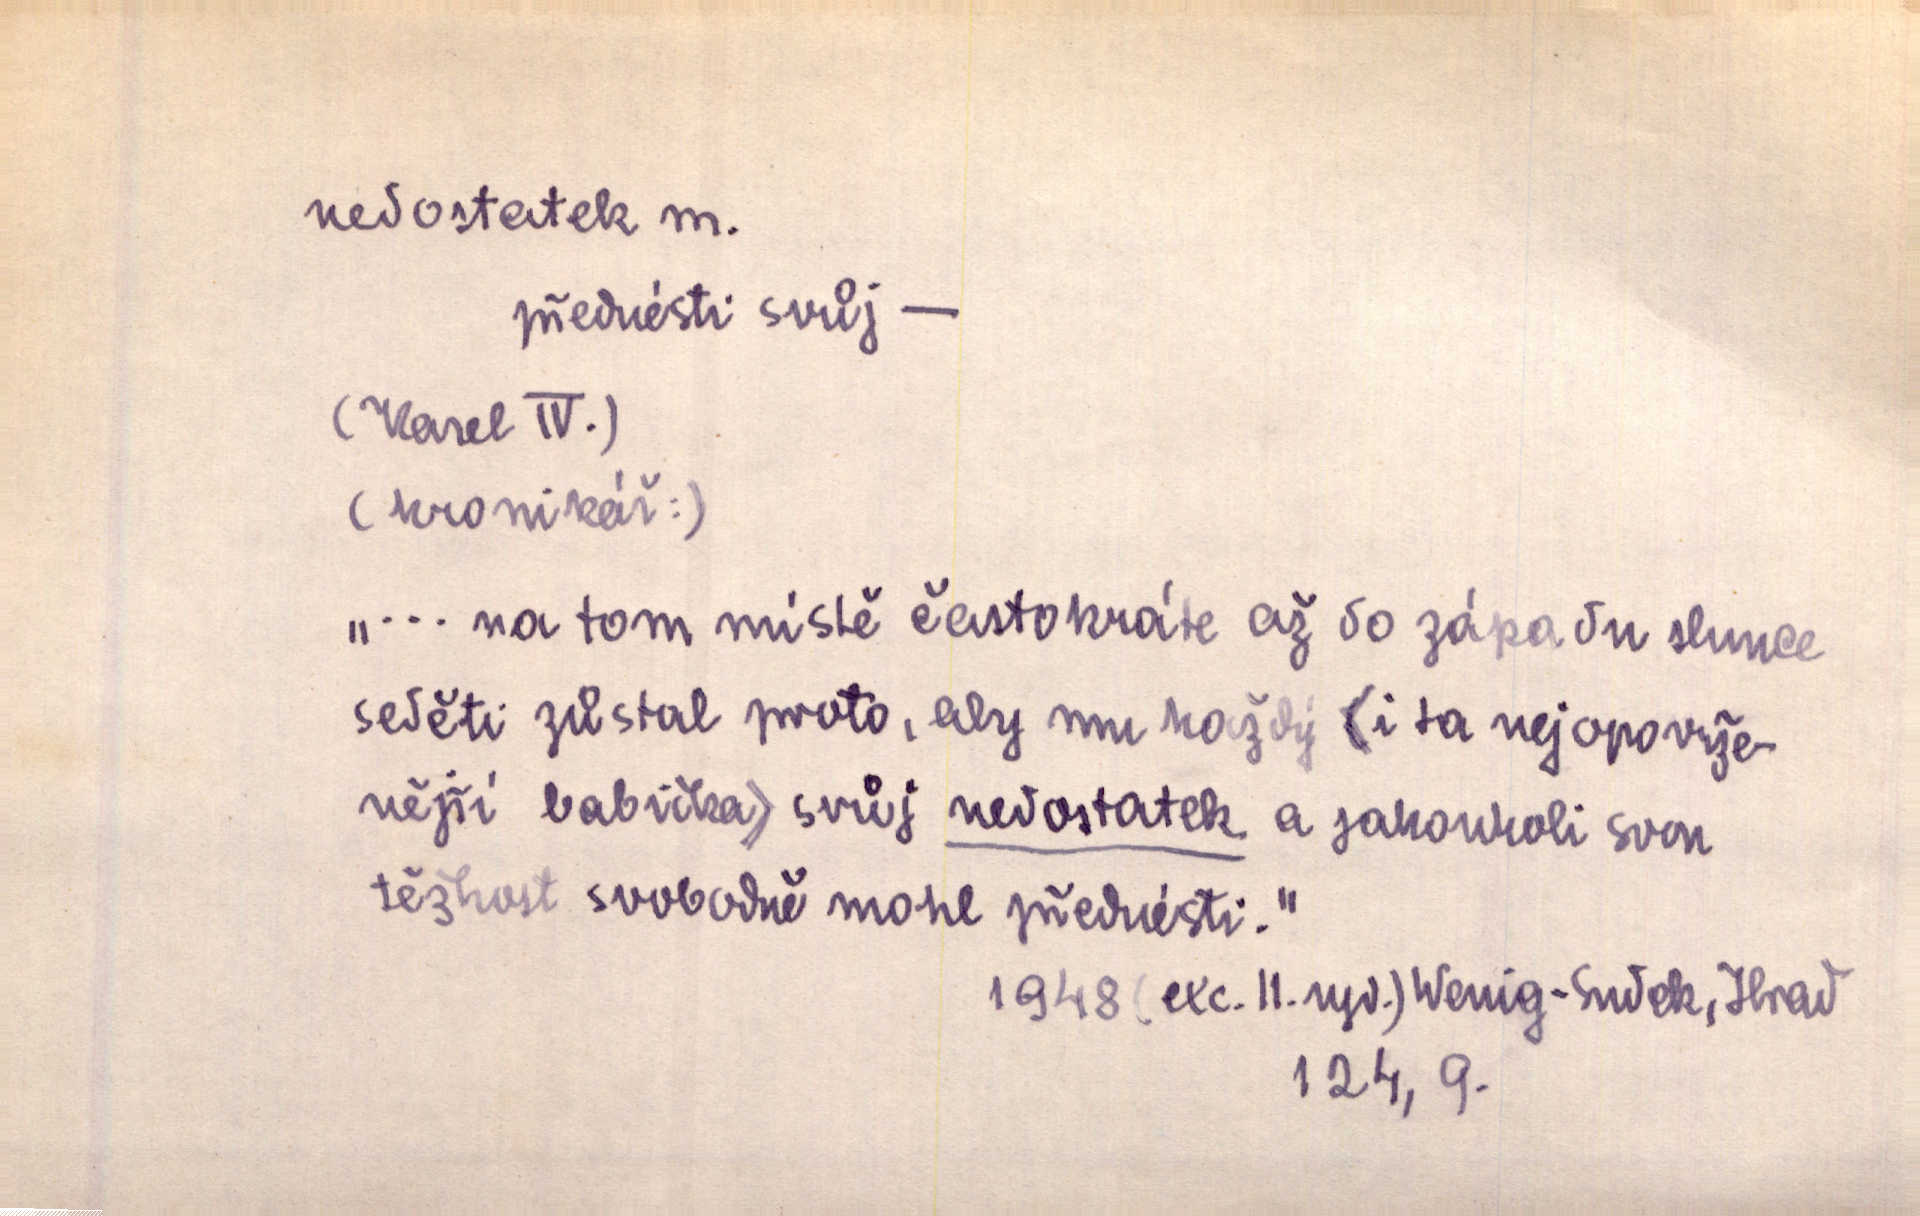 nedostatek m.
přednésti svůj —
(Karel IV.)
(kronikář:)
„... na tom místě častokráte až do západu slunce
seděti zůstal proto, aby mu každý (i ta nejopovrže-
nější babička) svůj nedostatek a jakoukoli svou
těžkost svobodně mohl přednésti."
1948 (exc. II. vyd.) Wenig-Sudek, Hrad
124, 9.